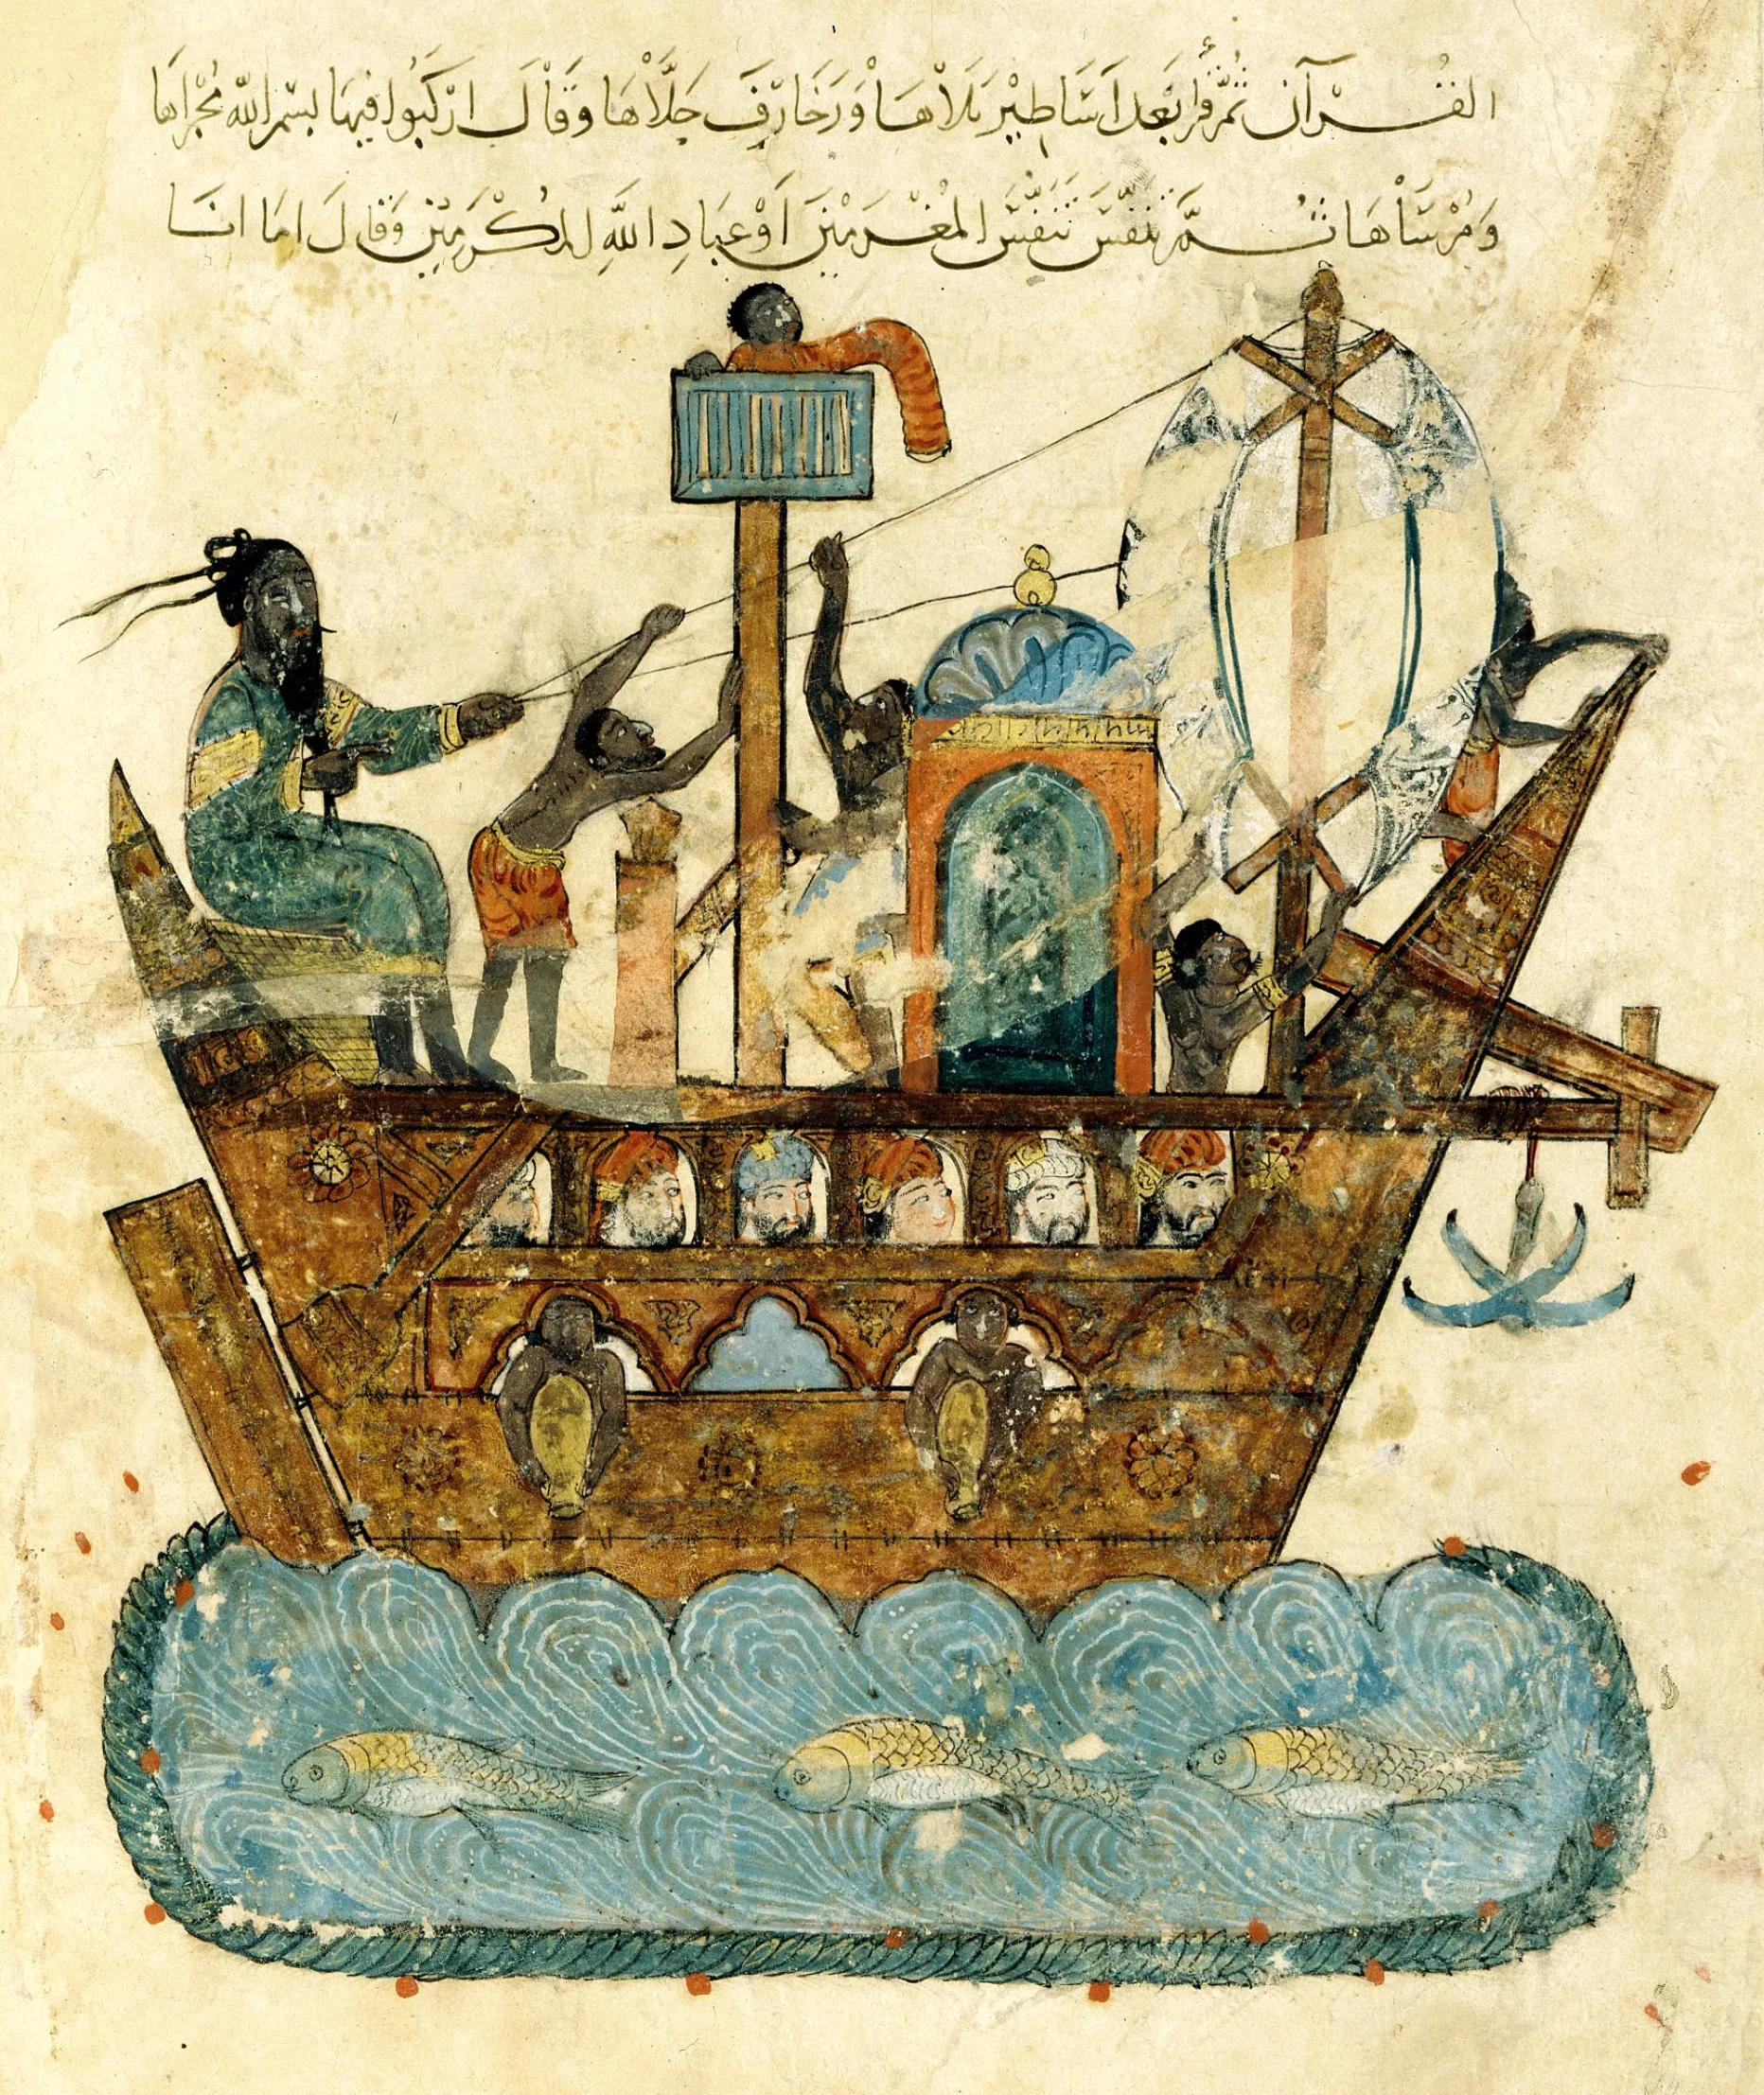 القُرْآن ثُمَّ قرأ بَعدَ اَسَاطِيْر تَلاْهَا وَزَخَارِفَ جَلَّاْهَا وَقَاْلَ ارْكَبُوا فيهَا بسْمِ اللّه مُجْراهَا
وَمُرْسَاْهَا ثُمَّ تَنَفَّسَ تَنَفُّسَ المُغْرَمِيْنَ اَوْعِبَادِ اللَّهِ المُكْرَمِيْنَ وَقَالَ اما انَا